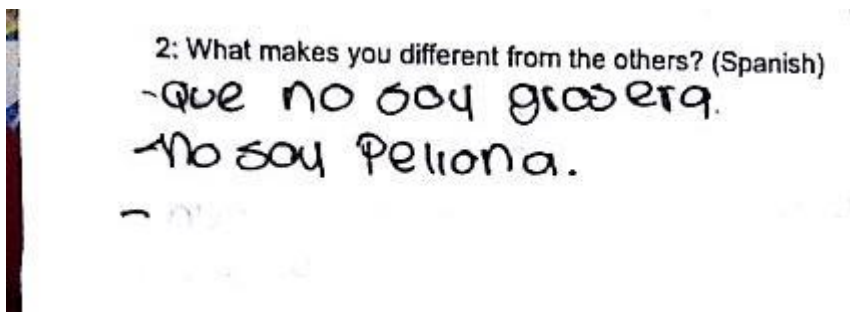 2: What makes you different from the others? (Spanish)
-Que no soy grosera.
-No soy Peliona.
-